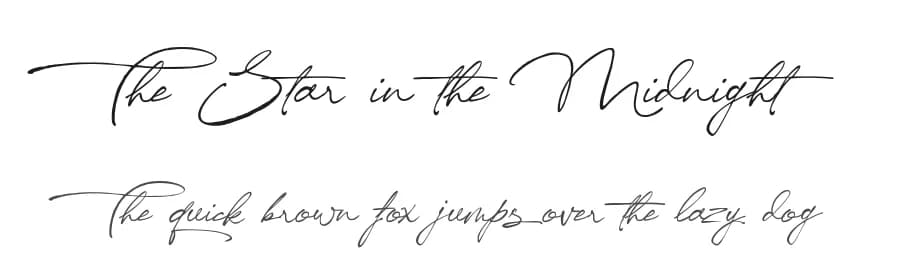 The Star in the Midnight
The quick brown fox jumps over the lazy dog